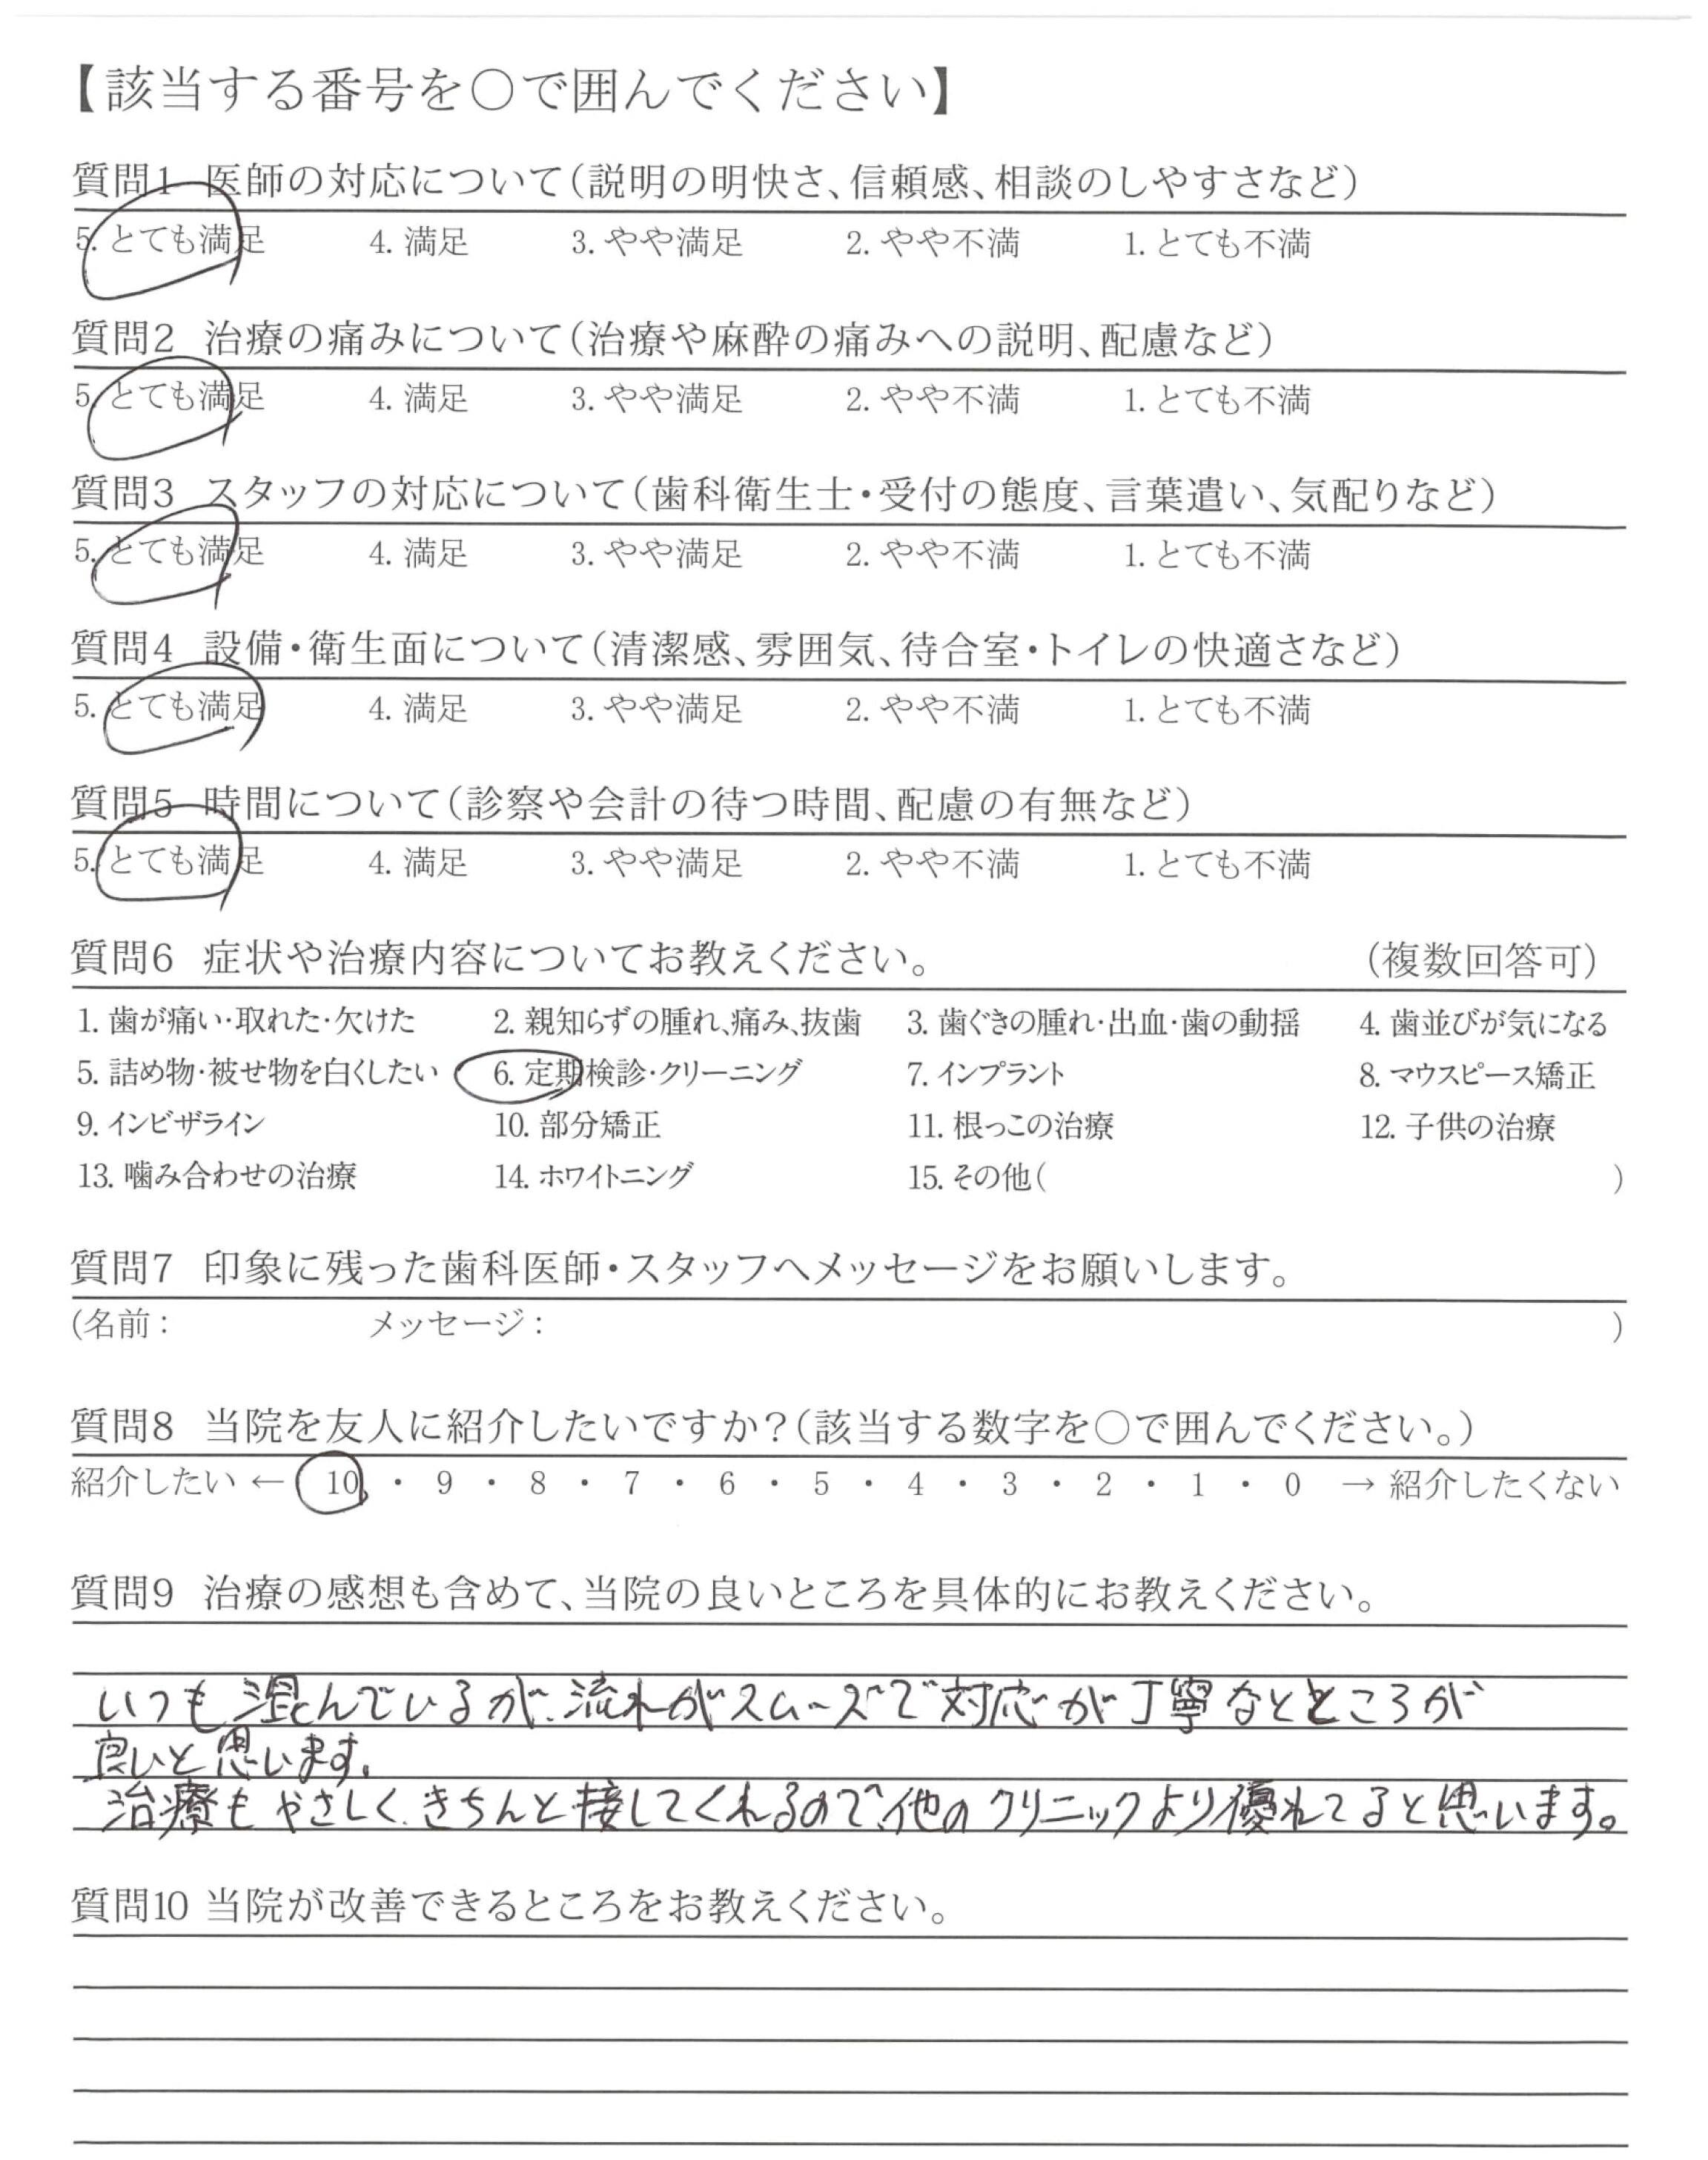 【該当する番号を〇で囲んでください】
質問1 医師の対応について（説明の明快さ、信頼感、相談のしやすさなど）
5. とても満足 4. 満足 3. やや満足 2. やや不満 1. とても不満
質問2 治療の痛みについて（治療や麻酔の痛みへの説明、配慮など）
5. とても満足 4. 満足 3. やや満足 2. やや不満 1. とても不満
質問3 スタッフの対応について（歯科衛生士・受付の態度、言葉遣い、気配りなど）
5. とても満足 4. 満足 3. やや満足 2. やや不満 1. とても不満
質問4 設備・衛生面について（清潔感、雰囲気、待合室・トイレの快適さなど）
5. とても満足 4. 満足 3. やや満足 2. やや不満 1. とても不満
質問5 時間について（診察や会計の待つ時間、配慮の有無など）
5. とても満足 4. 満足 3. やや満足 2. やや不満 1. とても不満
質問6 症状や治療内容についてお教えください。 （複数回答可）
1. 歯が痛い・取れた・欠けた 2. 親知らずの腫れ、痛み、抜歯 3. 歯ぐきの腫れ・出血・歯の動揺 4. 歯並びが気になる
5. 詰め物・被せ物を白くしたい 6. 定期検診・クリーニング 7. インプラント 8. マウスピース矯正
9. インビザライン 10. 部分矯正 11. 根っこの治療 12. 子供の治療
13. 噛み合わせの治療 14. ホワイトニング 15. その他（ ）
質問7 印象に残った歯科医師・スタッフへメッセージをお願いします。
（名前： メッセージ： ）
質問8 当院を友人に紹介したいですか？（該当する数字を〇で囲んでください。）
紹介したい ← 10 ・ 9 ・ 8 ・ 7 ・ 6 ・ 5 ・ 4 ・ 3 ・ 2 ・ 1 ・ 0 → 紹介したくない
質問9 治療の感想も含めて、当院の良いところを具体的にお教えください。
いつも混んでいるが、流れがスムーズで対応が丁寧なとところが
良いと思います。
治療もやさしく、きちんと接してくれるので、他のクリニックより優れてると思います。
質問10 当院が改善できるところをお教えください。